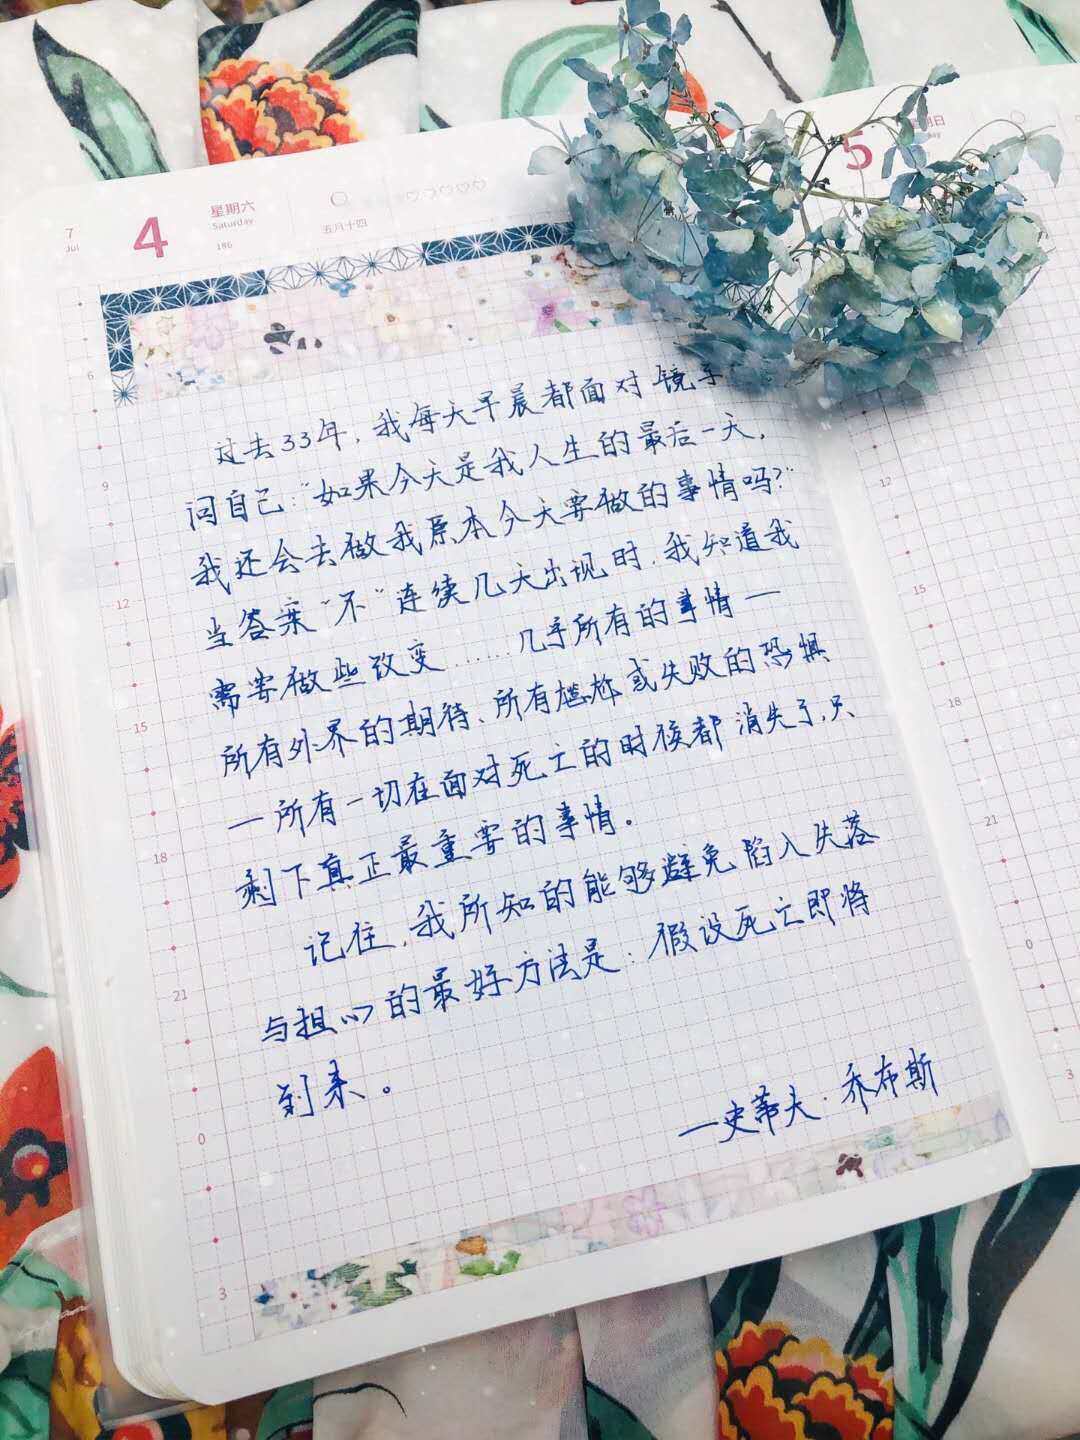 7
Jul
4
星期六
Saturday
186
五月十四
5
期日
过去33年，我每天早晨都面对镜子
问自己："如果今天是我人生的最后一天，
我还会去做我原本今天要做的事情吗？"
当答案"不"连续几天出现时，我知道我
需要做些改变……几乎所有的事情—
所有外界的期待、所有尴尬或失败的恐惧
—所有一切在面对死亡的时候都消失了，只
剩下真正最重要的事情。
记住，我所知的能够避免陷入失落
与担心的最好方法是：假设死亡即将
到来。
—史蒂夫·乔布斯
6
9
12
15
18
21
0
3
12
15
18
21
0
3